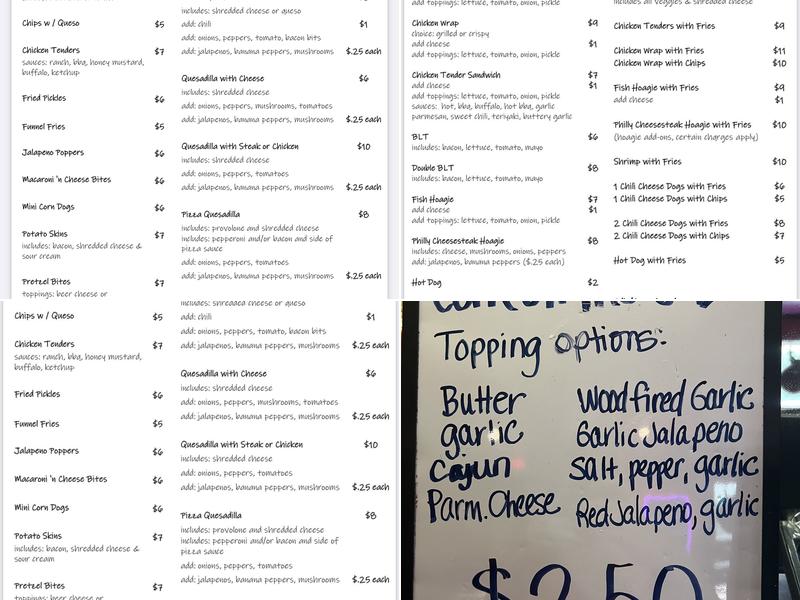 includes: shredded cheese or queso
Chips w / Queso $5
add: chili $1
add: onions, peppers, tomato, bacon bits
Chicken Tenders $7
add: jalapenos, banana peppers, mushrooms $.25 each
sauces: ranch, bbq, honey mustard,
buffalo, ketchup
Quesadilla with Cheese $6
includes: shredded cheese
Fried Pickles $6
add: onions, peppers, mushrooms, tomatoes
add: jalapenos, banana peppers, mushrooms $.25 each
Funnel Fries $5
Quesadilla with Steak or Chicken $10
Jalapeno Poppers $6
includes: shredded cheese
add: onions, peppers, tomatoes
Macaroni 'n Cheese Bites $6
add: jalapenos, banana peppers, mushrooms $.25 each
Mini Corn Dogs $6
Pizza Quesadilla $8
includes: provolone and shredded cheese
Potato Skins $7
includes: pepperoni and/or bacon and side of
pizza sauce
includes: bacon, shredded cheese &
sour cream
add: onions, peppers, tomatoes
add: jalapenos, banana peppers, mushrooms $.25 each
Pretzel Bites $7
toppings: beer cheese or
add toppings: lettuce, tomato, onion, pickle
Chicken Wrap $9
choice: grilled or crispy
add cheese $1
add toppings: lettuce, tomato, onion, pickle
Chicken Tender Sandwich $7
add cheese $1
add toppings: lettuce, tomato, onion, pickle
sauces: hot, bbq, buffalo, hot bbq, garlic
parmesan, sweet chili, teriyaki, buttery garlic
BLT $6
includes: bacon, lettuce, tomato, mayo
Double BLT $8
includes: bacon, lettuce, tomato, mayo
Fish Hoagie $7
add cheese $1
add toppings: lettuce, tomato, onion, pickle
Philly Cheesesteak Hoagie $8
includes: cheese, mushrooms, onions, peppers
add: jalapenos, banana peppers ($.25 each)
Hot Dog $2
includes all veggies & shredded cheese
Chicken Tenders with Fries $9
Chicken Wrap with Fries $11
Chicken Wrap with Chips $10
Fish Hoagie with Fries $9
add cheese $1
Philly Cheesesteak Hoagie with Fries $10
(hoagie add-ons, certain charges apply)
Shrimp with Fries $10
1 Chili Cheese Dogs with Fries $6
1 Chili Cheese Dogs with Chips $5
2 Chili Cheese Dogs with Fries $8
2 Chili Cheese Dogs with Chips $7
Hot Dog with Fries $5
includes: shredded cheese or queso
Chips w / Queso $5
add: chili $1
add: onions, peppers, tomato, bacon bits
Chicken Tenders $7
add: jalapenos, banana peppers, mushrooms $.25 each
sauces: ranch, bbq, honey mustard,
buffalo, ketchup
Quesadilla with Cheese $6
includes: shredded cheese
Fried Pickles $6
add: onions, peppers, mushrooms, tomatoes
add: jalapenos, banana peppers, mushrooms $.25 each
Funnel Fries $5
Quesadilla with Steak or Chicken $10
Jalapeno Poppers $6
includes: shredded cheese
add: onions, peppers, tomatoes
Macaroni 'n Cheese Bites $6
add: jalapenos, banana peppers, mushrooms $.25 each
Mini Corn Dogs $6
Pizza Quesadilla $8
includes: provolone and shredded cheese
Potato Skins $7
includes: pepperoni and/or bacon and side of
pizza sauce
includes: bacon, shredded cheese &
sour cream
add: onions, peppers, tomatoes
add: jalapenos, banana peppers, mushrooms $.25 each
Pretzel Bites $7
toppings: beer cheese or
Topping options:
Butter garlic
Cajun
Parm. Cheese
Wood fired Garlic
Garlic Jalapeno
Salt, pepper, garlic
Red Jalapeno, garlic
$2.50